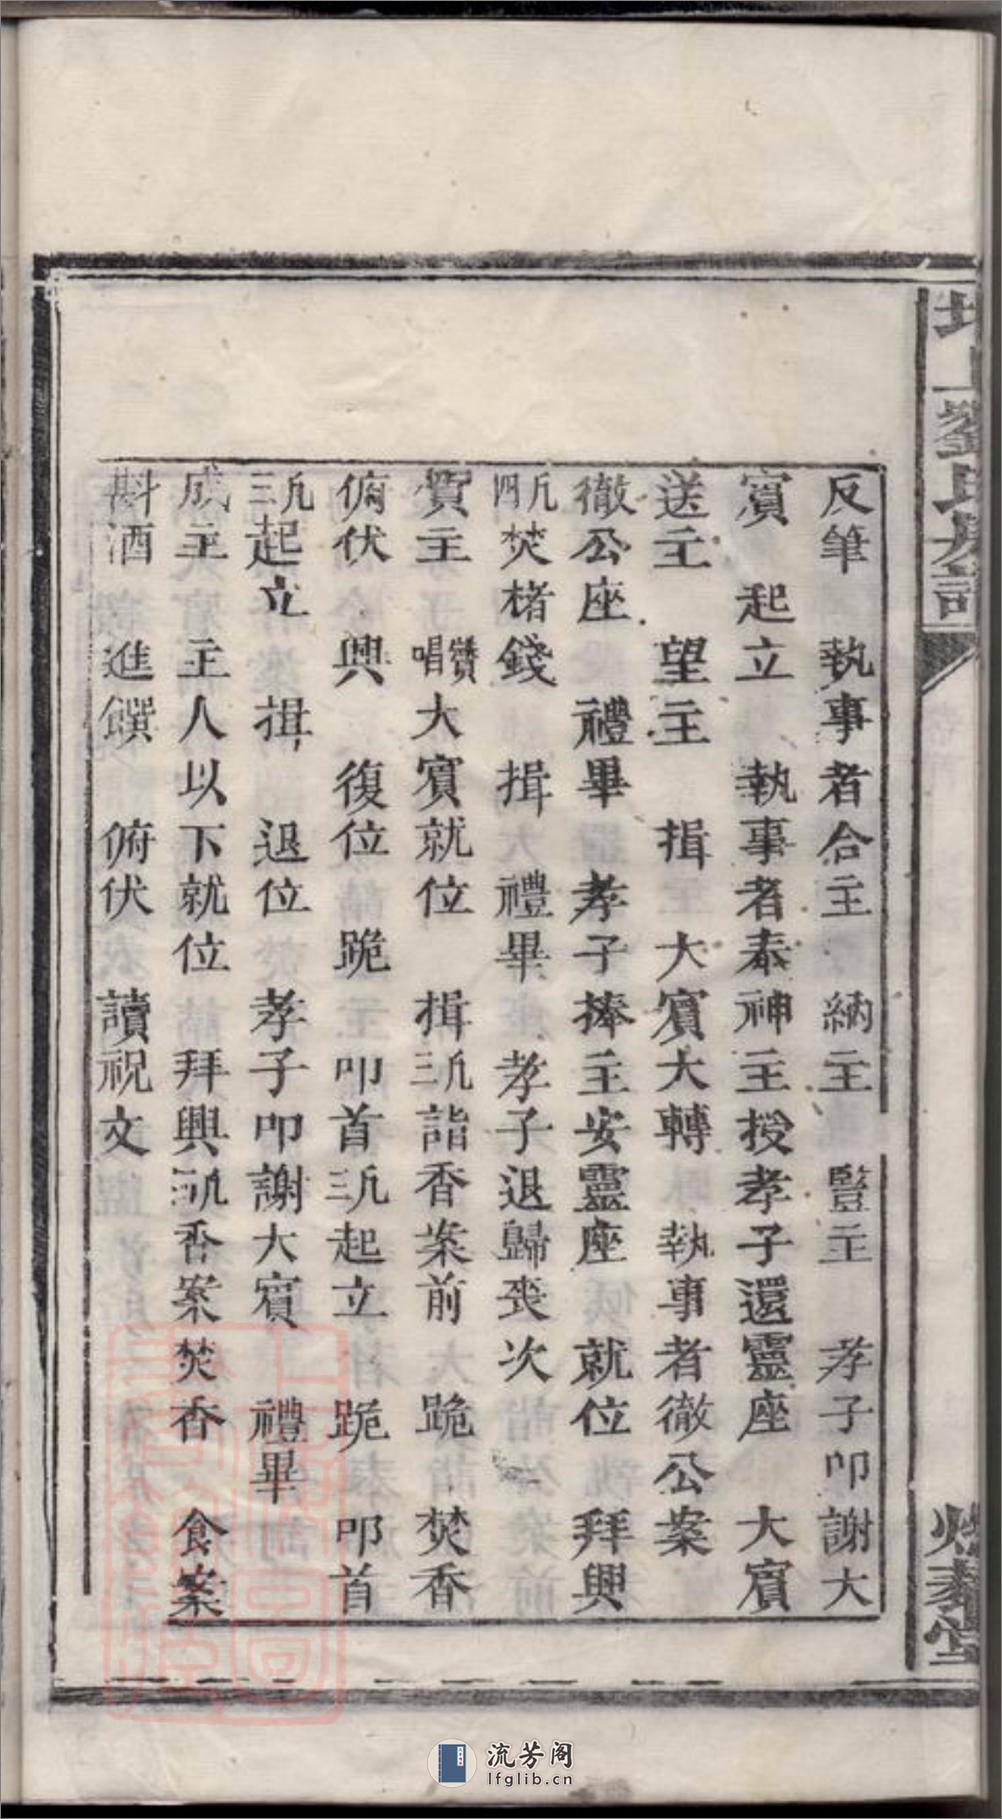 反筆　執事者合主　納主　豎主　孝子叩謝大
賓　起立　執事者奉神主授孝子還靈座　大賓
送主　望主　揖　大賓大轉　執事者徹公案
徹公座　禮畢　孝子捧主安靈座　就位　拜興
凡四焚楮錢　揖　禮畢　孝子退歸喪次
賀主　贊唱大賓就位　揖凡三詣香案前　跪　焚香
俯伏　興　復位　跪　叩首凡三起立　跪　叩首
凡三起立　揖　退位　孝子叩謝大賓　禮畢
成主　主人以下就位　拜興凡　香案焚香　食案
斟酒　進饌　俯伏　讀祝文
上劉氏
堂
流芳阁
lfglib.cn